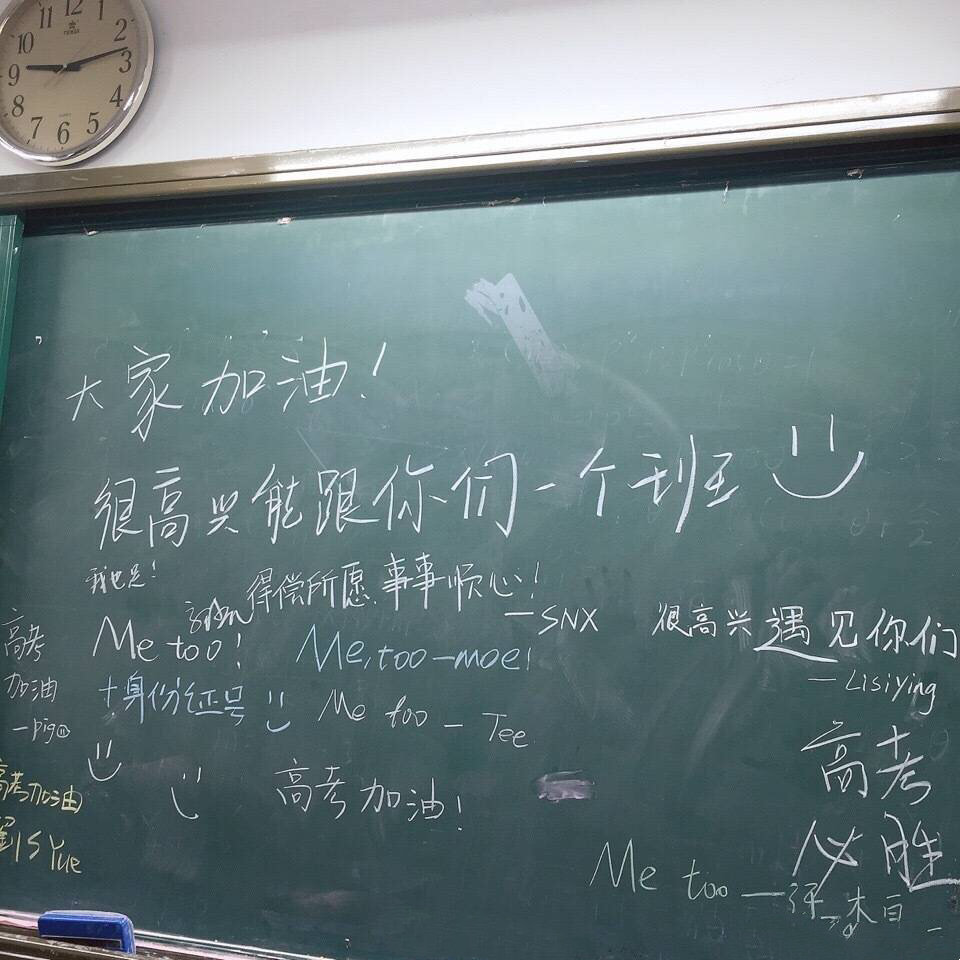 11 12 1
10 2
9 3
8 4
7 6 5
大家加油！
很高兴能跟你们一个班
我也是！
得偿所愿 事事顺心！
—SNX
Me too!
Me, too—moe!
很高兴遇见你们
—Lisiying
高考
加油
—pig⑪
十身份证号
Me too — Tee
高考加油
S Yue
高考加油！
高考
必胜
Me too —
木白